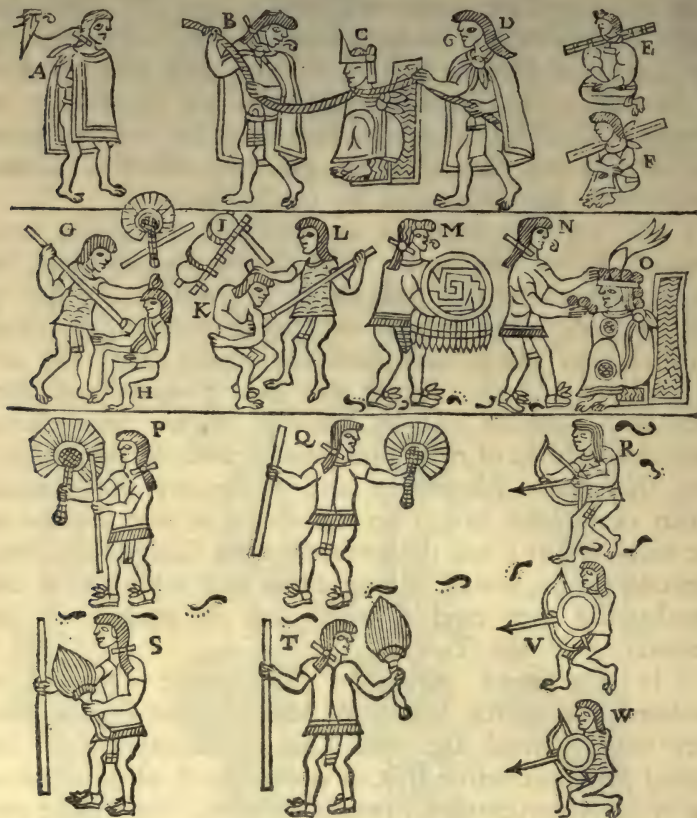 A B C D E
F
G J L M N
K O
H
P Q R
S T V
W